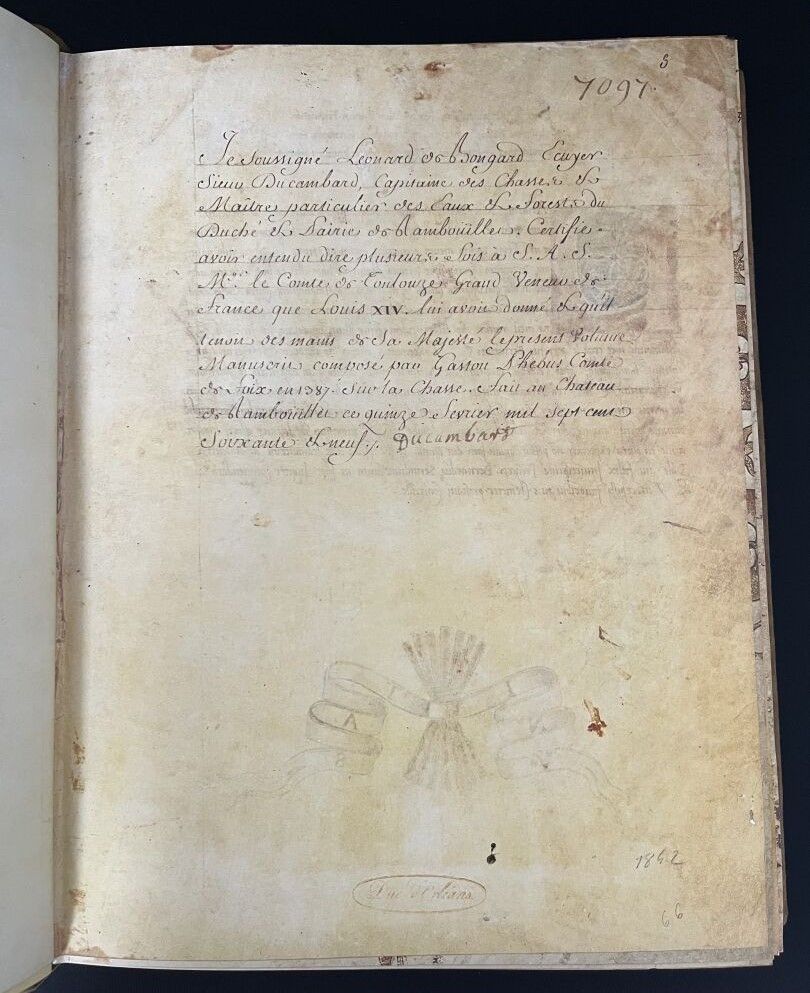 5
7097.
Je Soussigné Léonard de Bongard Ecuyer
Sieur Ducambard, Capitaine des Chasses &
Maître particulier des Eaux & Forests du
Duché & Pairie de Rambouillet. Certifie
avoir entendu dire plusieurs fois à S. A. S.
Mgr. le Comte de Toulouze Grand Veneur de
France que Louis XIV. lui avoit donné & qu'il
tenoit des mains de Sa Majesté le present Volume
Manuscrit composé par Gaston Phébus Comte
de Foix en 1387. Sur la Chasse. Fait au Chateau
de Rambouillet ce quinze Fevrier mil sept cent
Soixante & neuf./. Ducambard
A
Duc d'Orléans
1862
66